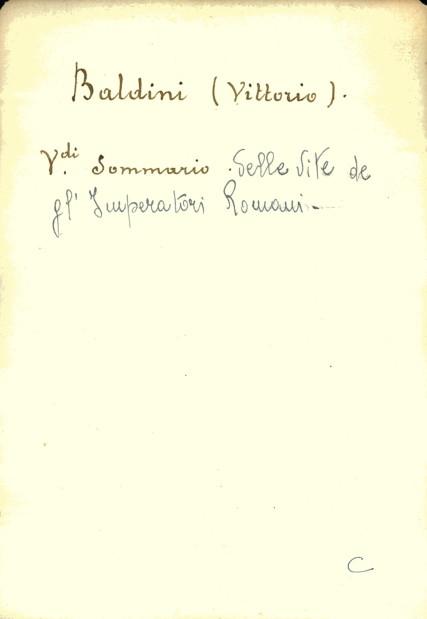 Baldini (Vittorio).
V.di Sommario delle Vite de
gl' Imperatori Romani
C